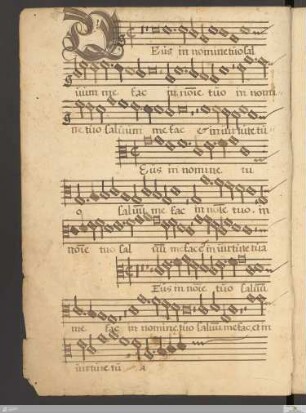 D Eus in nomine tuo sal
uum me fac in noīe tuo in nomi
ne tuo saluum me fac et in uirtute tu
Eus in nomine tu
o saluū me fac in noīe tuo in
noīe tuo sal uū me fac et in uirtute tua
Eus in noīe tuo saluū
me fac in nomine tuo saluū me fac et in
uirtute tu a